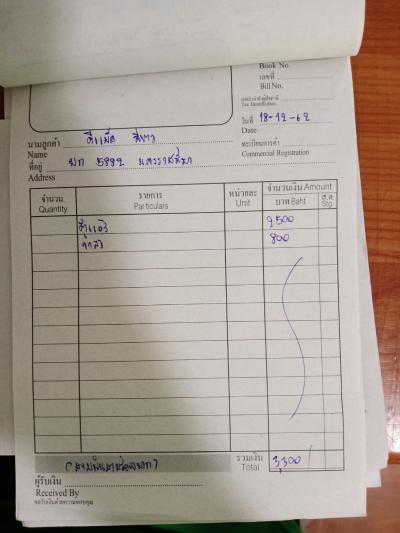 Book No.
เลขที่
Bill No.
เลขประจำตัวผู้เสียภาษี
Tax Identification
วันที่ 18-12-62
Date
นามลูกค้า ดีแม็ค สีเทา
Name
ทะเบียนการค้า
ที่อยู่ 5882 นครราชสีมา
Commercial Registration
Address
จำนวน รายการ หน่วยละ จำนวนเงิน Amount
Quantity Particulars Unit บาท Baht ส.ต. Stg.
2500
800
รวมเงิน 3,300
Total
(สามพันสามร้อยบาท)
ผู้รับเงิน
Received By
ขอรับเงินด้วยความขอบคุณ